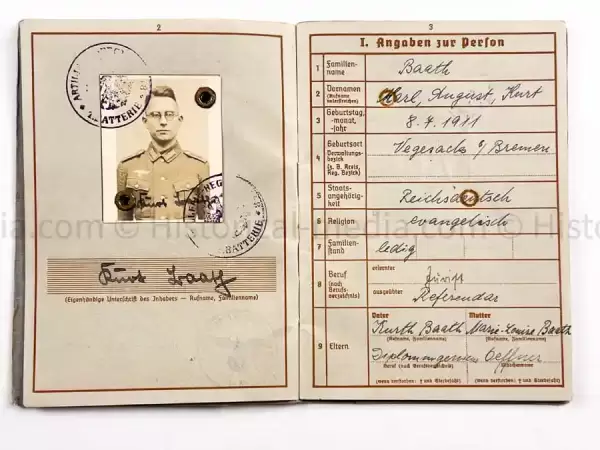 2
BATTERIE
Kurt Baath
(Eigenhändige Unterschrift des Inhabers — Rufname, Familienname)
3
I. Angaben zur Person
1 Familienname Baath
2 Vornamen (Rufname unterstreichen) Karl, August, Kurt
3 Geburtstag, -monat, -jahr 8. 7. 1911
4 Geburtsort Verwaltungsbezirk (z. B. Kreis, Reg. Bezirk) Vegesack b/Bremen
5 Staatsangehörigkeit Reichsdeutsch
6 Religion evangelisch
7 Familienstand ledig
8 Beruf (nach Berufsverzeichnis) erlernter Jurist
ausgeübter Referendar
9 Eltern
Vater Mutter
Kurth Baath Marie-Louise Baath
(Rufname, Familienname) (Rufname, Familienname)
Diplomingenieur Oeffner
Beruf (nach Berufsverzeichnis) Mädchenname
(wenn verstorben: † und Sterbejahr) (wenn verstorben: † und Sterbejahr)
ia.com © Historical-media.com © Histo